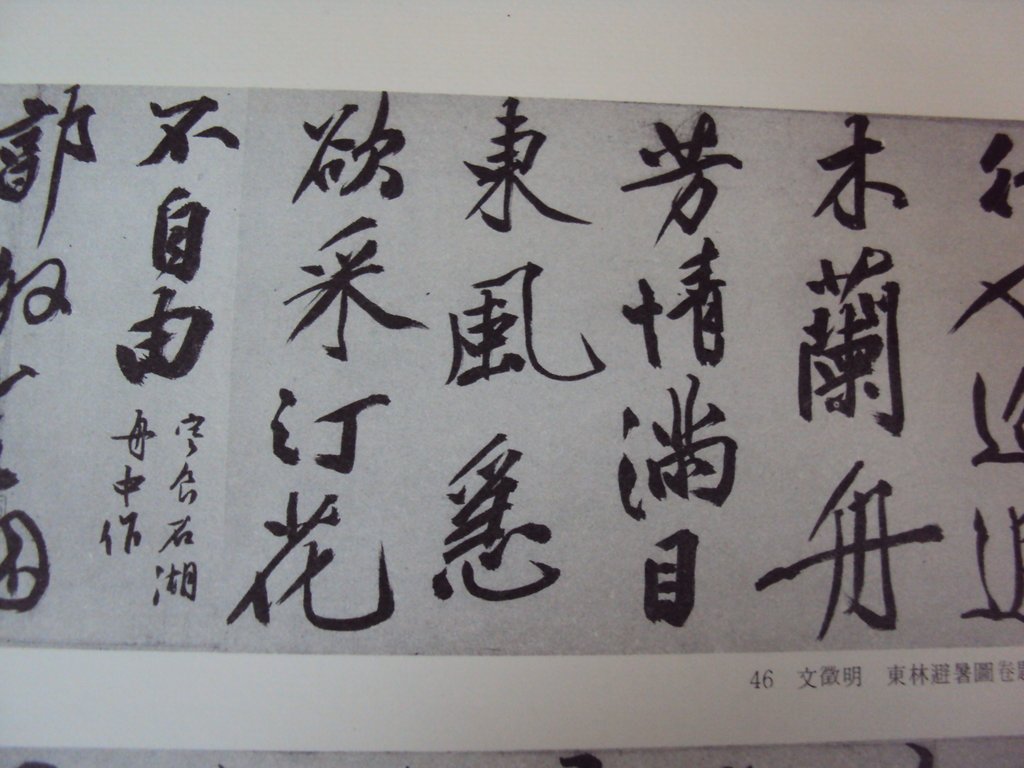 行人
木蘭舟
芳情滿目
東風惡
欲采汀花
不自由
寒食石湖
舟中作
46 文徵明 東林避暑圖卷